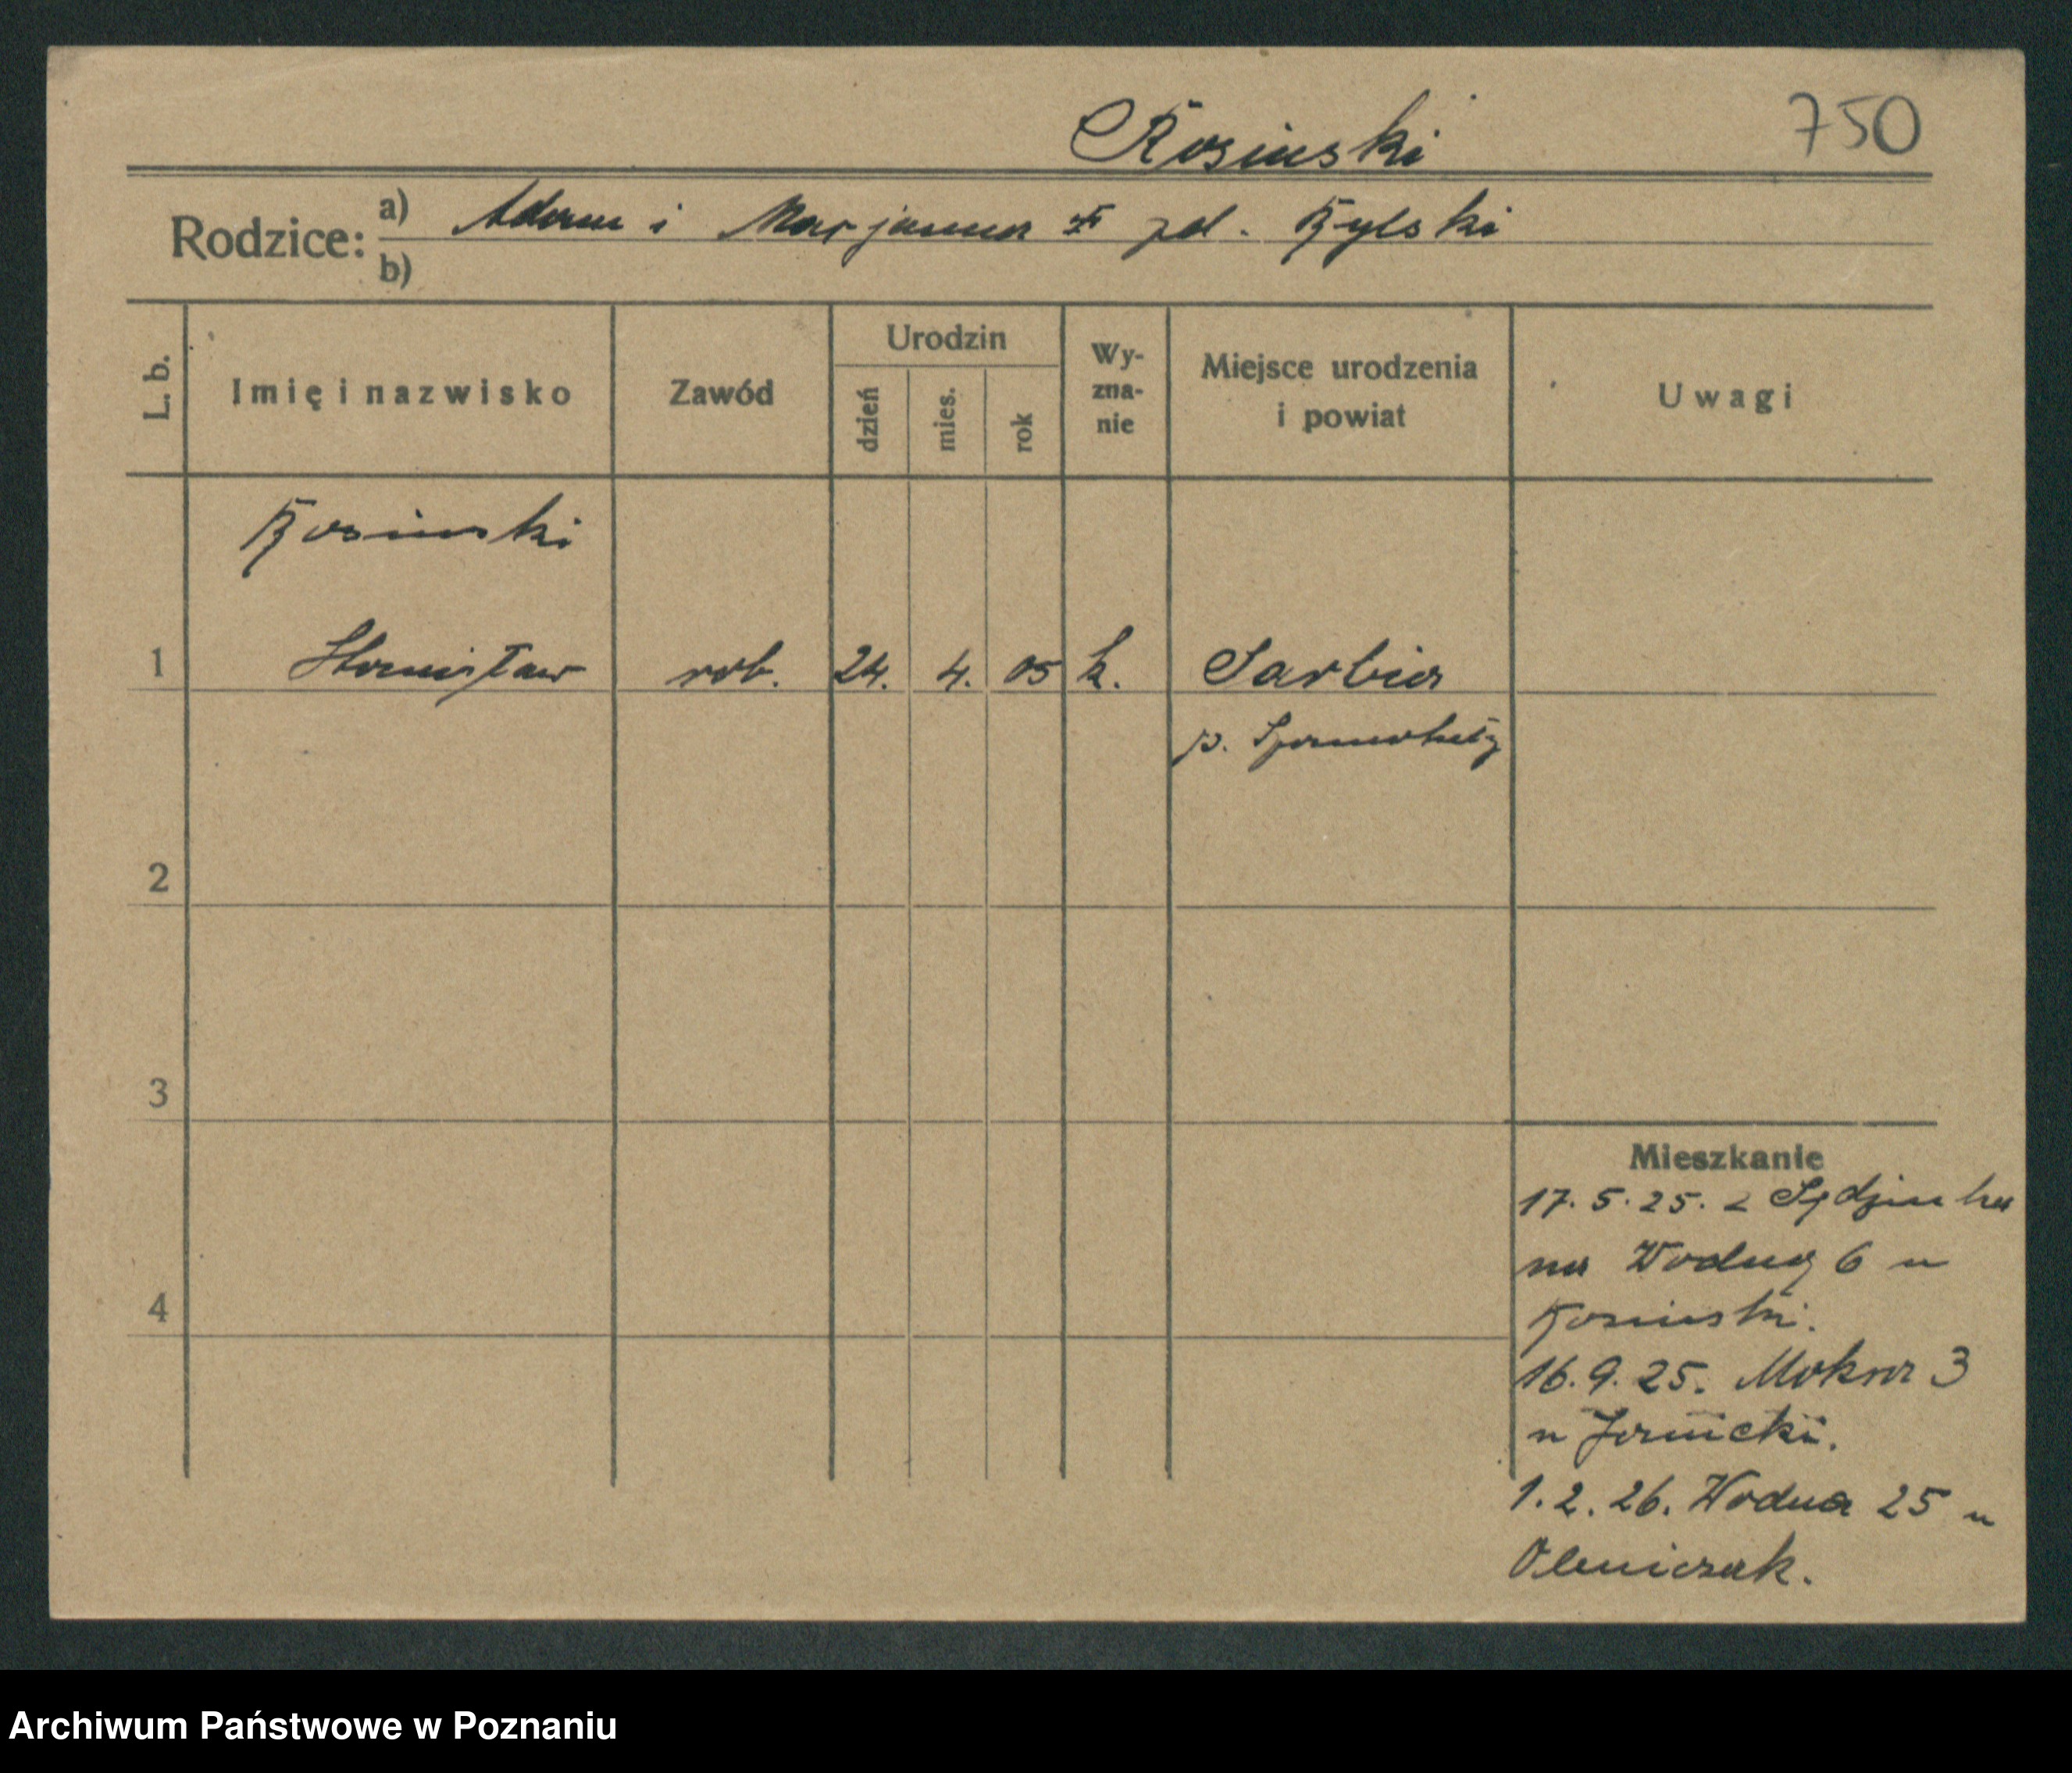 750
Rosinski
Rodzice: a) Adam i Marjanna zd. Rylski
b)
L. b. Imię i nazwisko Zawód Urodzin dzień mies. rok Wy-zna-nie Miejsce urodzenia i powiat Uwagi
Rosinski
1 Stanisław rob. 24. 4. 05 k. Sarbia
p. Szamotuły
2
3
Mieszkanie
17. 5. 25. z Sędzinka
na Wodną 6 u
4
Rosinski.
16. 9. 25. Mokra 3
u Jarnicki.
1. 2. 26. Wodna 25 u
Oleniczak.
Archiwum Państwowe w Poznaniu